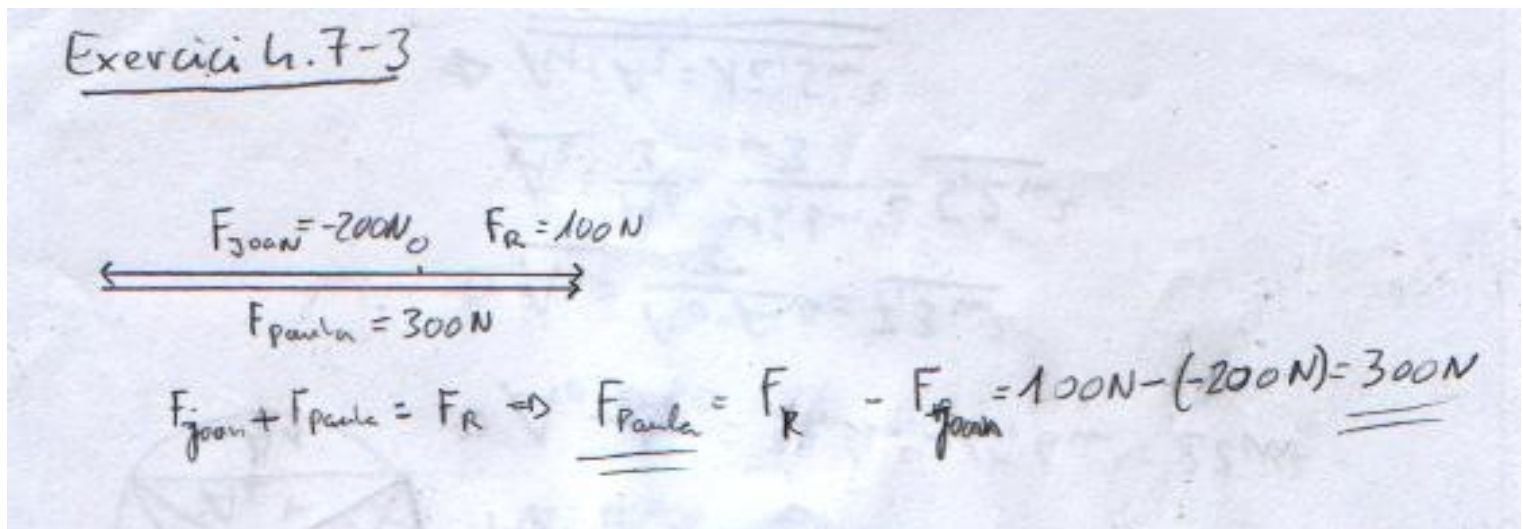 Exercici h.7-3
F_Joan = -200N O F_R = 100N
F_Paula = 300N
F_Joan + F_Paula = F_R => F_Paula = F_R - F_Joan = 100N - (-200N) = 300N